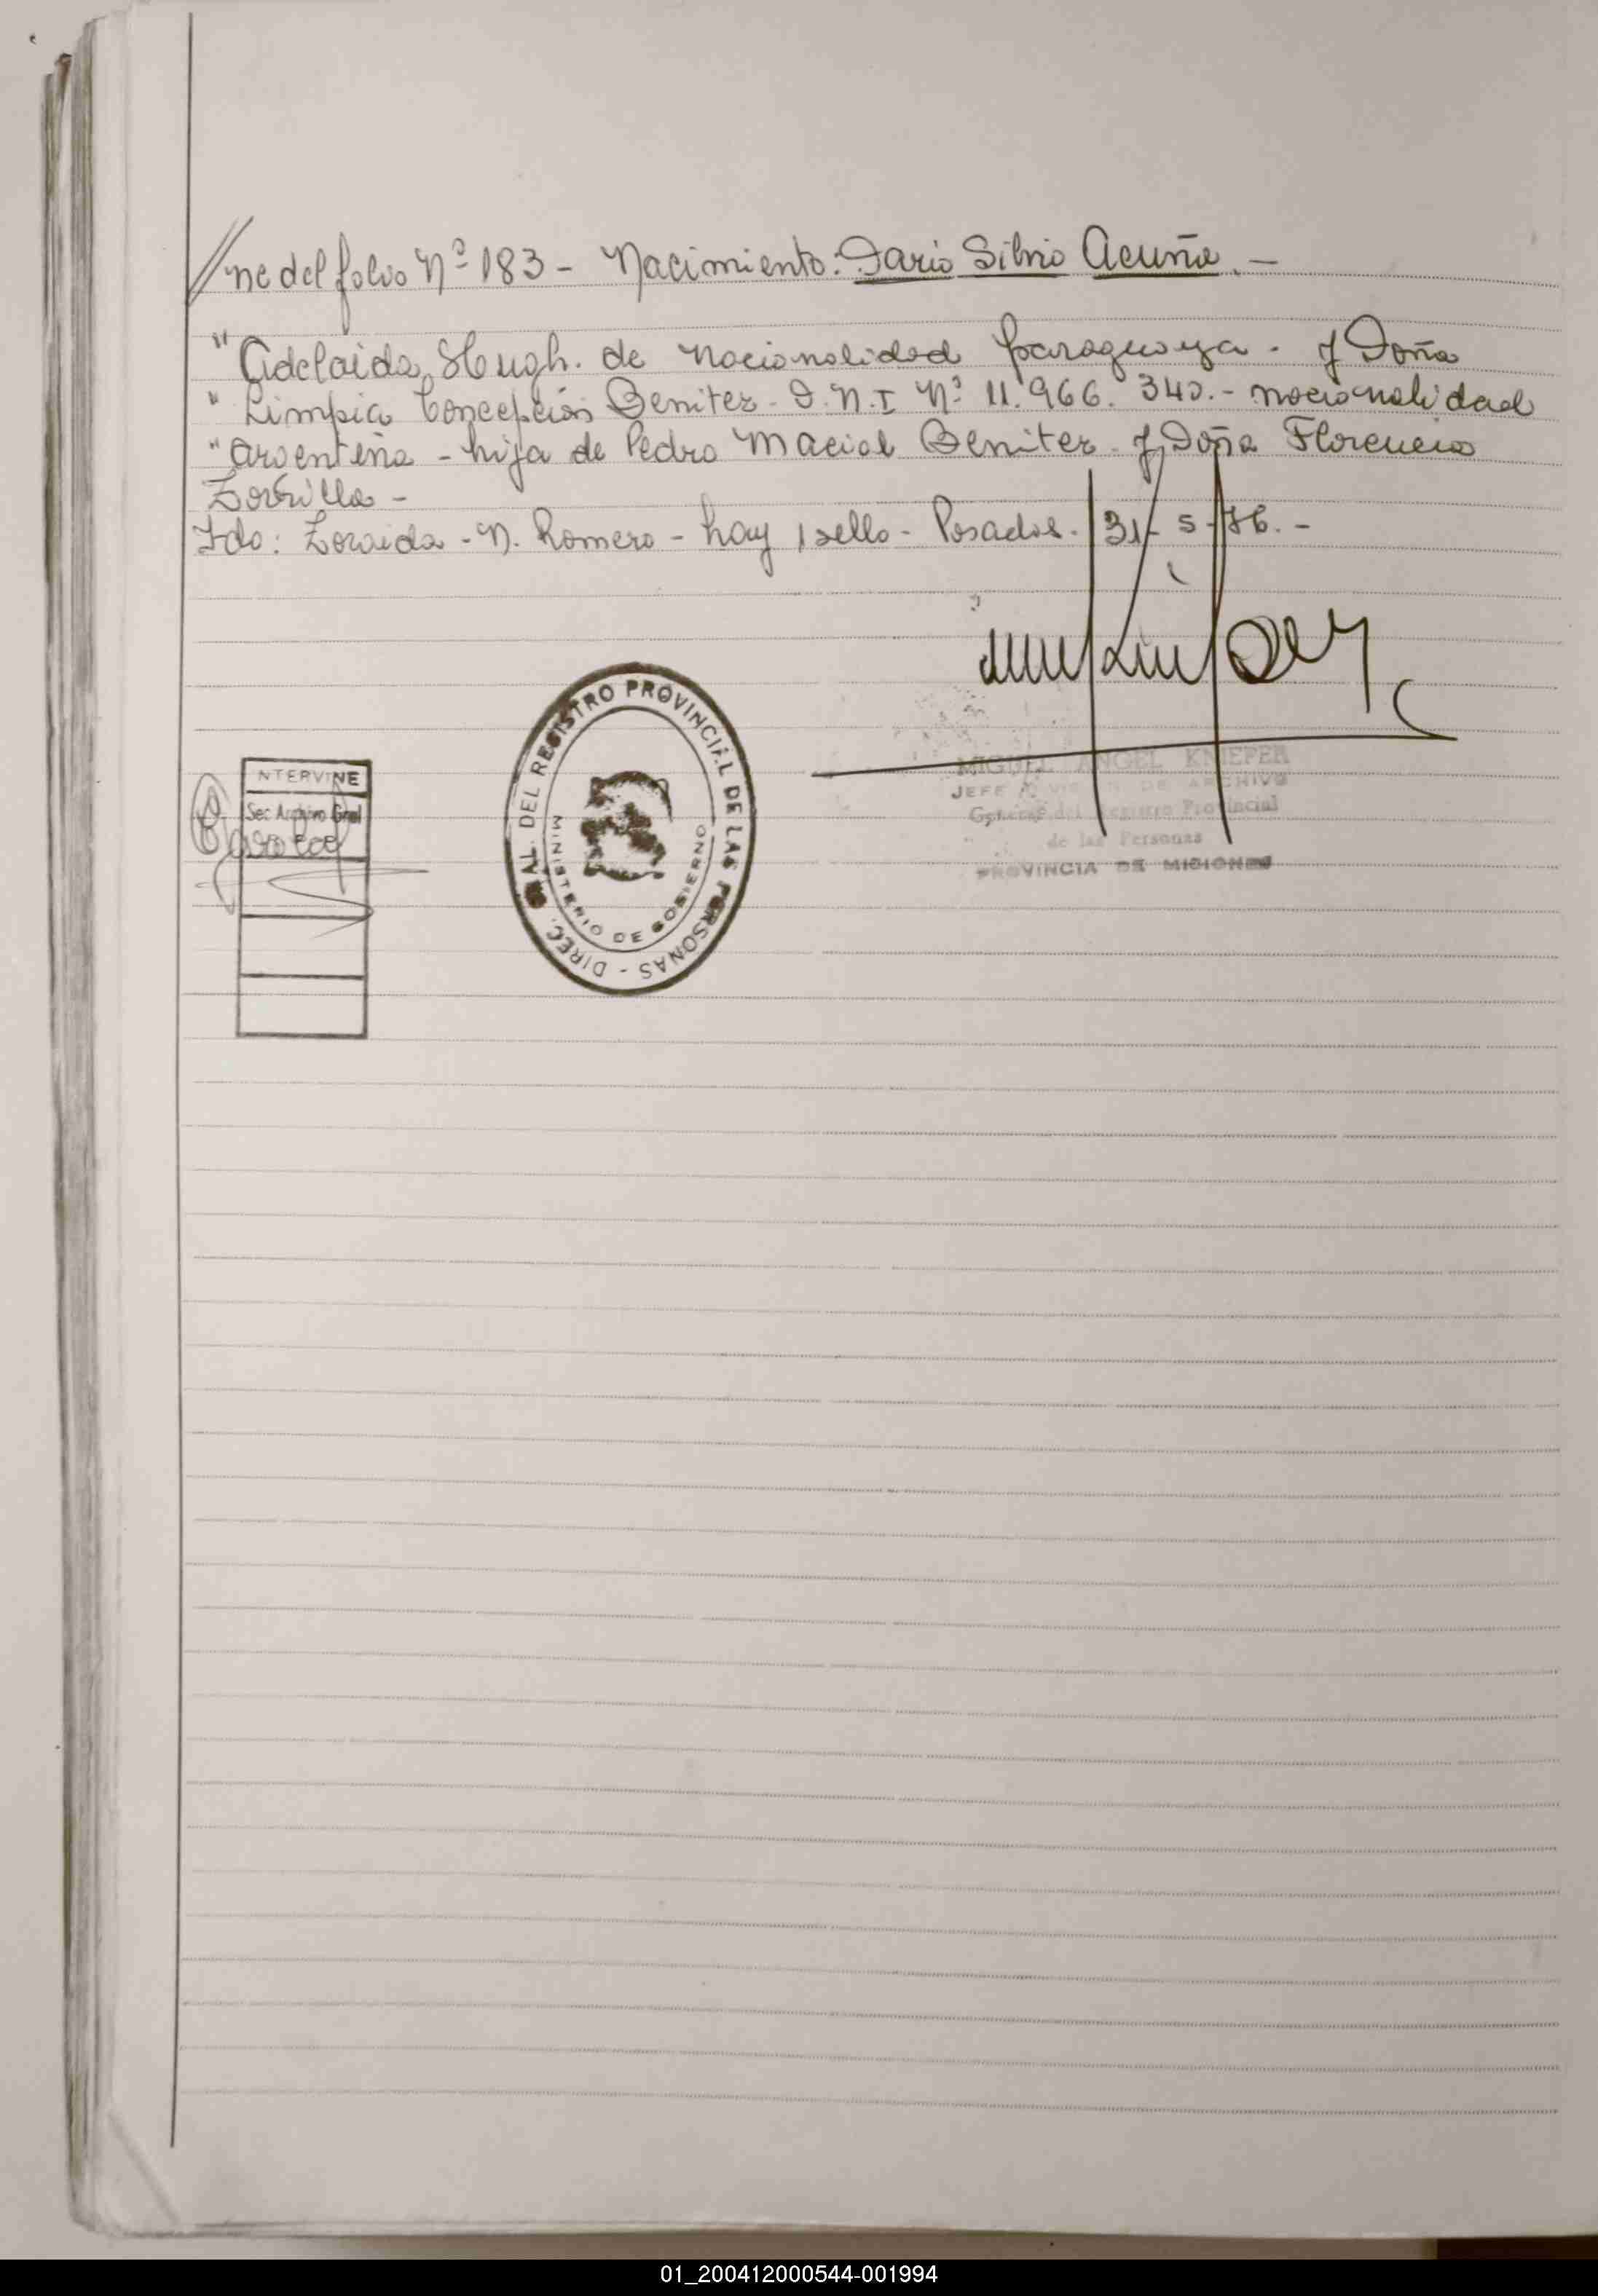 //ne del folio Nº 183 - Nacimiento: Dario Silvio Acuña. -
" Adelaida Hugh. de nacionalidad paraguaya - y Doña
" Limpia Concepción Benitez - D.N.I Nº 11.966.340. - nacionalidad
" argentina - hija de Pedro Macial Benitez - y Doña Florencia
Zorrilla -
Fdo: Zoraida - N. Romero - hay 1 sello - Posadas - 31-5-76. -
DIREC. GRAL. DEL REGISTRO PROVINCIAL DE LAS PERSONAS -
MINISTERIO DE GOBIERNO
NTERVINE
Sec Archivo Gral
MIGUEL ANGEL KNIEFER
JEFE DIVISION DE ARCHIVO
General del Registro Provincial
de las Personas
PROVINCIA DE MISIONES
01_200412000544-001994